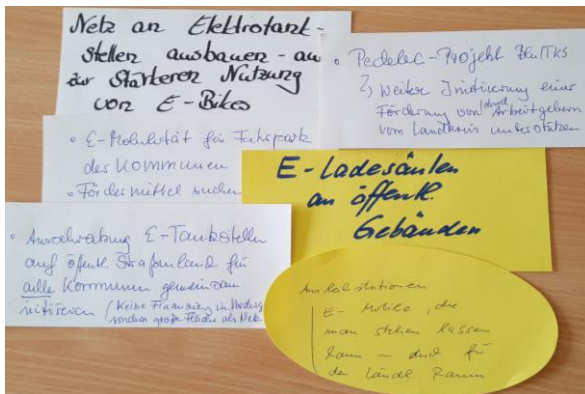 Netz an Elektrotank-
stellen ausbauen - au
zur Stärkeren Nutzung
von E-Bikes
• Pedelec-Projekt
weitere Initiierung einer
Förderung von durch Arbeitgebern
vom Landkreis unterstützen
• E-Mobilität für Fuhrpark
der KOMMUNEN
• Fördermittel suchen
E-Ladesäulen
an öffentl.
Gebäuden
• Ausschreibung E-Tankstellen
auf öffentl. Straßenland für
alle Kommunen gemeinsam
initiieren (Keine Finanzierung im
sondern große Fläche als Netz
Ausleihstationen
E-Mobile, die
man stehen lassen
kann – auch für
den Ländl. Raum